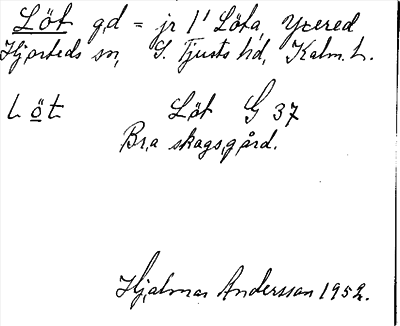 Löt gd = jr 1' Löta, Ycered
Hjorteds sn, S. Tjusts hd, Kalm. L.
Löt Löt G 37
Bra skogsgård.
Hjalmar Andersson 1952.